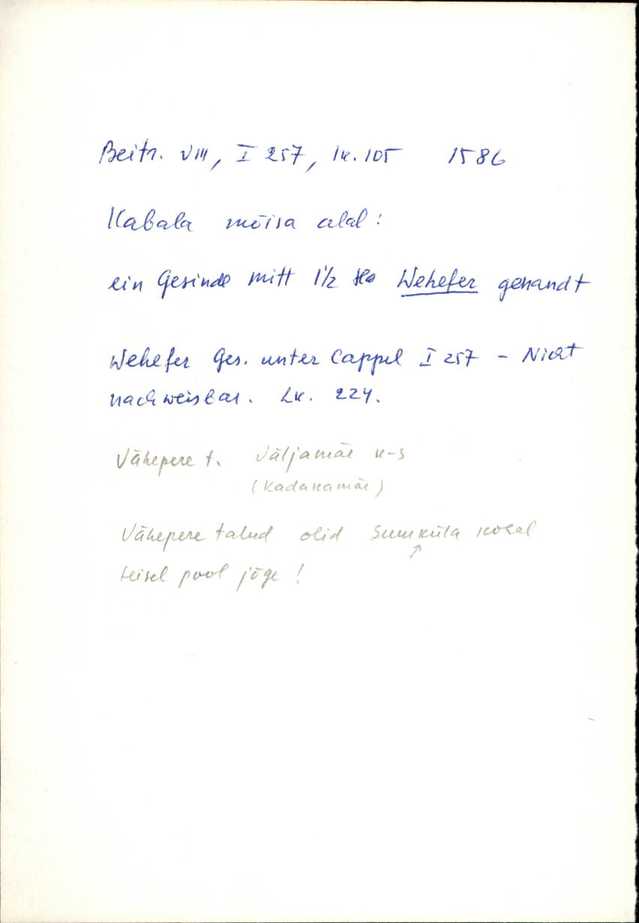 Beitr. VIII, I 257, lk. 105 1586
Kabala mõisa alal:
ein Gesinde mitt 1½ Wehefer genandt
Wehefer Ges. unter Cappel I 257 – Nicht
nachweisbar. Lk. 224.
Vähepere t. Väljamäe k-s
(Kadakamäe)
Vähepere talud olid kohal
teisel pool jõge!